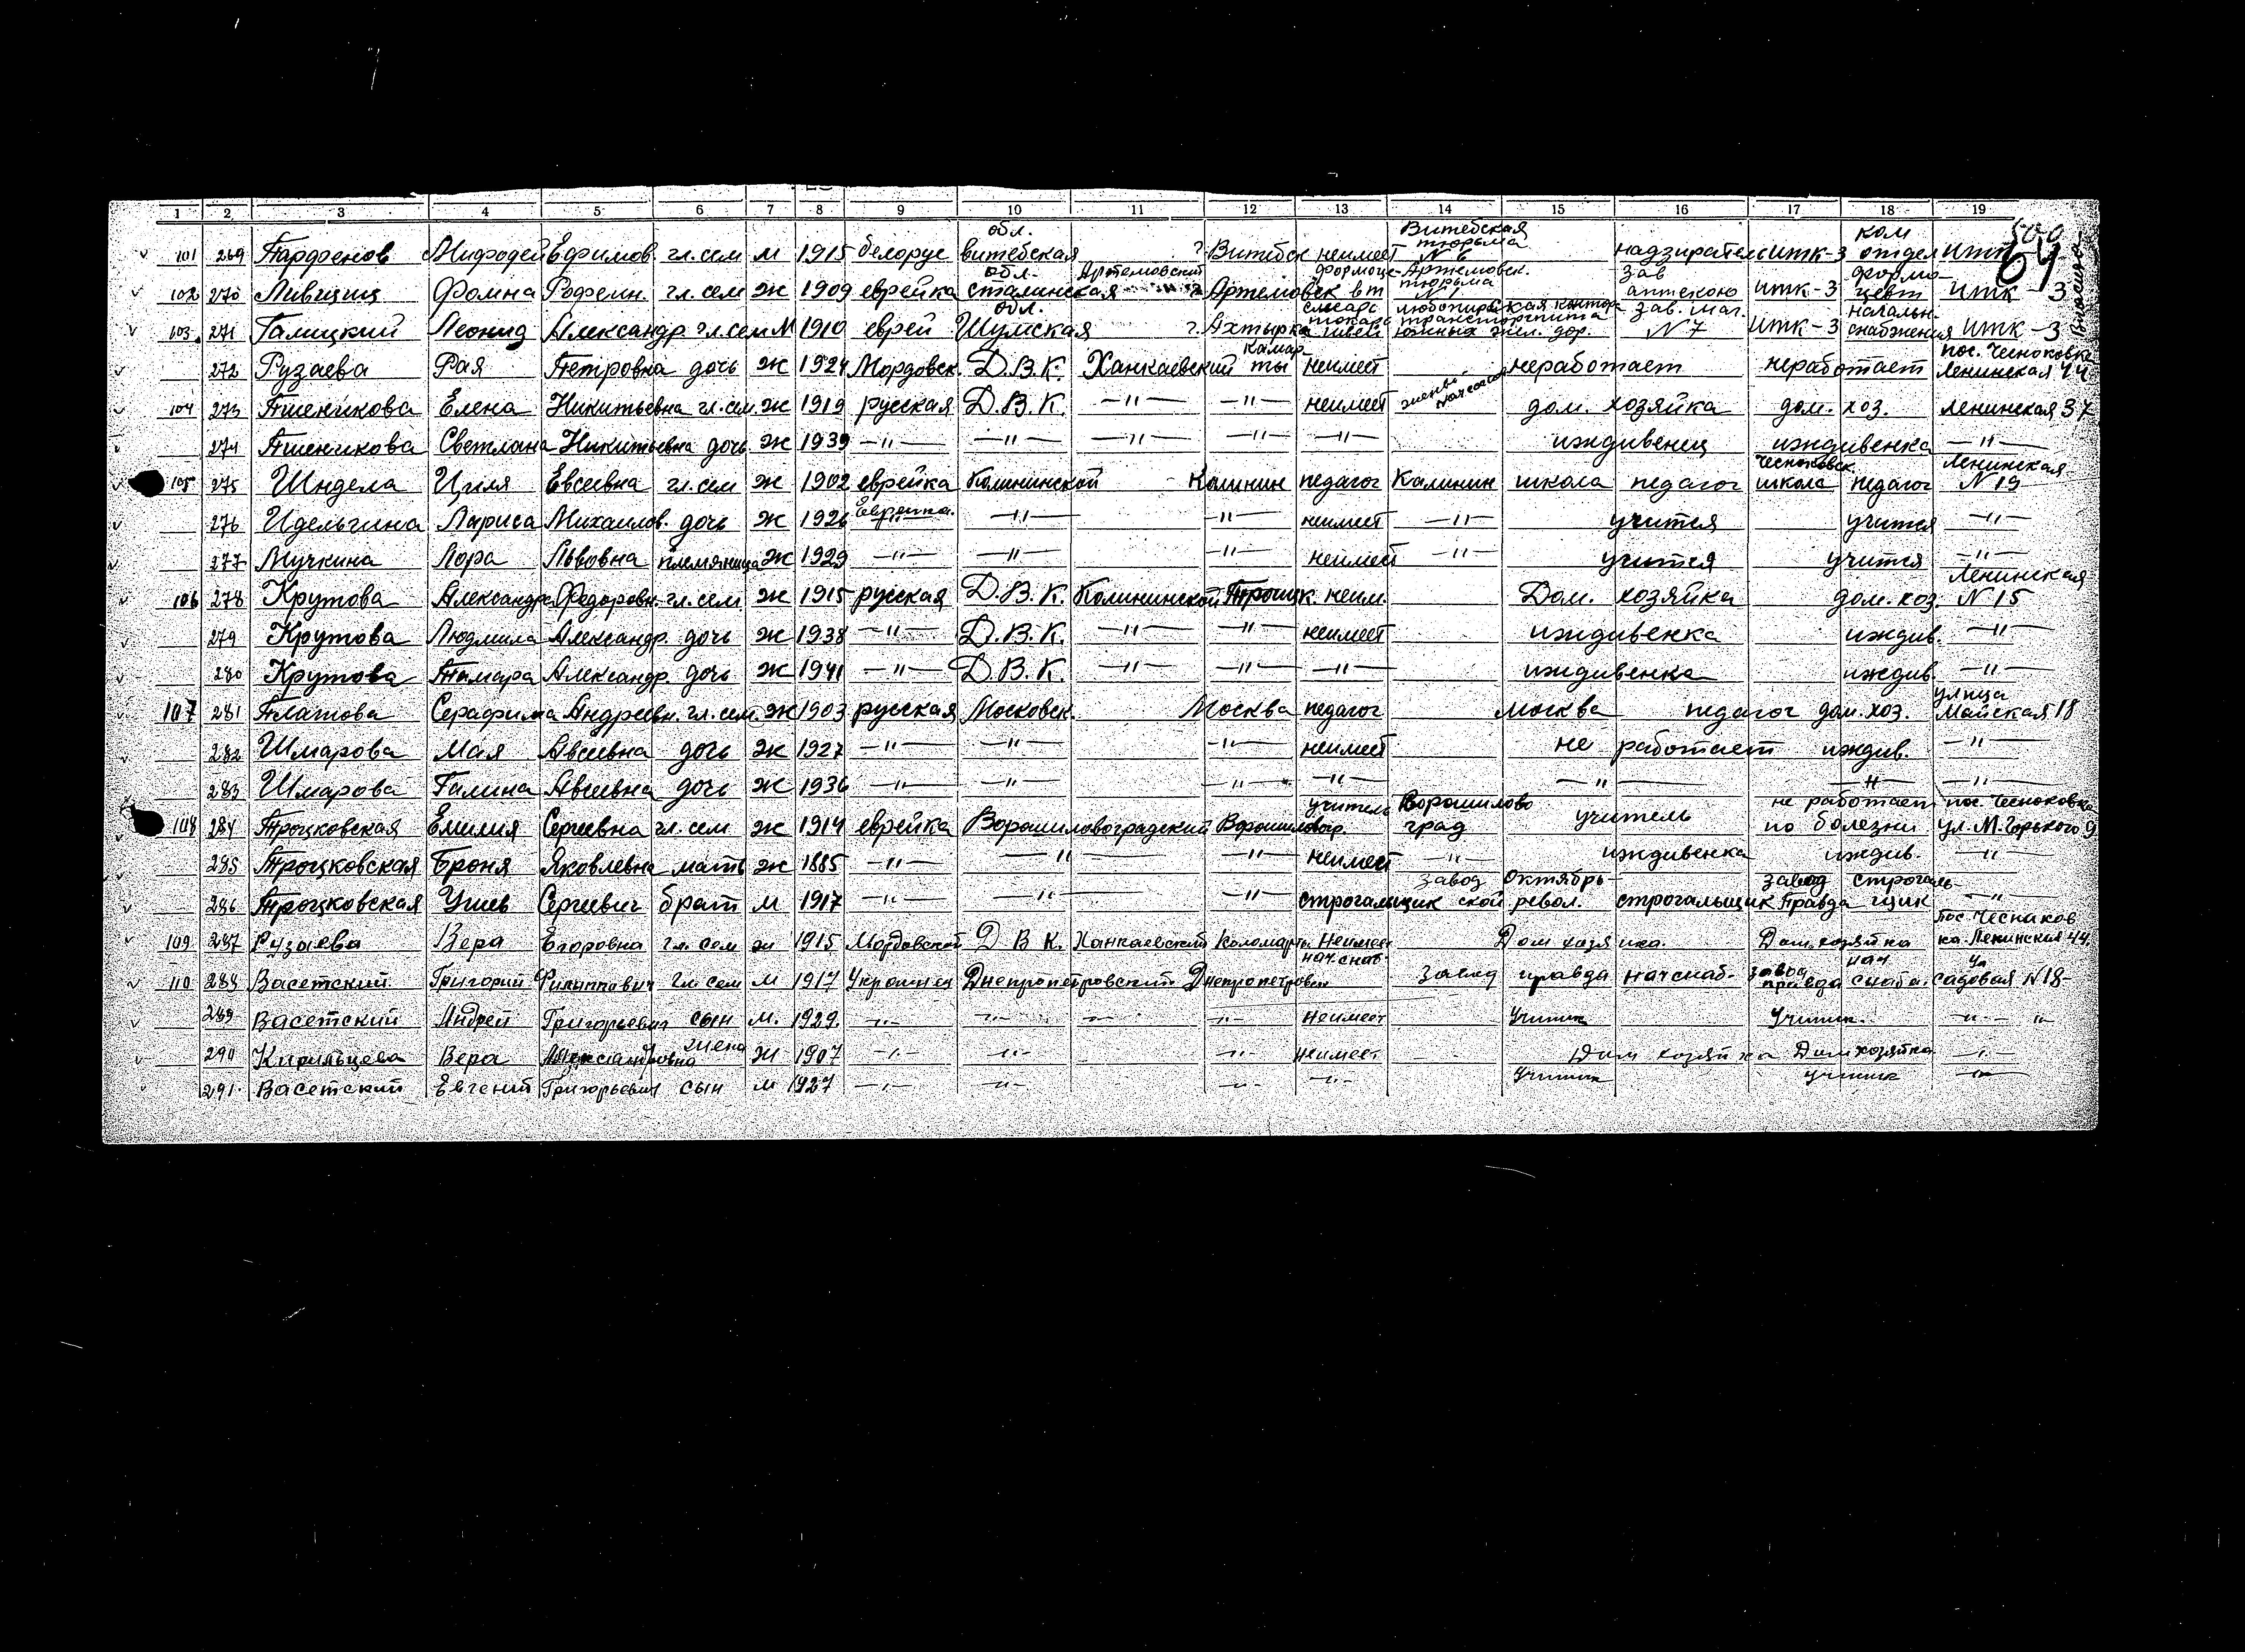 1 2 3 4 5 6 7 8 9 10 11 12 13 14 15 16 17 18 19
500
64
101 269 Парфенов Мифодей Ефимов. гл. сем м 1915 белорус обл. витебская ? Витебск неимеет Витебская тюрьма N 6 надзиратель итк-3 ком отдел итк
102 270 Лившиц Фолина гл. сем ж 1909 еврейка обл. сталинская Артемовский ? Артемовск Артемовск. тюрьма N 1 зав аптекою итк-3 итк-3
103. 271 Галицкий Леонид Александр. гл. сем м 1910 еврей обл. Шумская ? Ахтырка слесарь токарь контора южных жел. дор. зав. маг. N 7 итк-3 начальн. снабжения итк-3
272 Рузаева Рая Петровна дочь ж 1924 Мордовск. Д.В.К. Ханкаевский Камарты неимеет неработает неработает пос. Чесноковка Ленинская 44
104 273 Пшеникова Елена Никитьевна гл. сем. ж 1919 русская Д.В.К. —"— —"— неимеет дом. хозяйка дом. хоз. Ленинская 37
274 Пшеникова Светлана Никитьевна дочь ж 1939 —"— —"— —"— —"— —"— иждивенец иждивенка —"—
105 275 Шндела Циля Евсеевна гл. сем ж 1902 еврейка Калининской Калинин педагог Калинин школа педагог Чесноковск. школа педагог Ленинская N 19
276 Идельчина Лариса Михаилов. дочь ж 1926 Еврейка. —"— —"— неимеет —"— учится учится —"—
277 Мучкина Лора Львовна племяница ж 1929 —"— —"— —"— неимеет —"— учится учится —"—
106 278 Крутова Александра Федоровн. гл. сем ж 1915 русская Д.В.К. Калининской Троицк. неим. Дом. хозяйка дом. хоз. Ленинская N 15
279 Крутова Людмила Александр. дочь ж 1938 —"— Д.В.К. —"— —"— неимеет иждивенка иждив. —"—
280 Крутова Тамара Александр. дочь ж 1941 —"— Д.В.К. —"— —"— —"— иждивенка иждив. —"—
107 281 Платова Серафима Андреевн. гл. сем. ж 1903 русская Московск. Москва педагог москва педагог дом. хоз. улица Майская 18
282 Шмарова Мая Авсеевна дочь ж 1927 —"— —"— —"— неимеет не работает иждив. —"—
283 Шмарова Галина Авсеевна дочь ж 1936 —"— —"— —"— —"— —"— —"— —"—
108 284 Троцковская Емилия Сергеевна гл. сем ж 1914 еврейка Ворошиловоградский Ворошиловогр. учитель Ворошилово град учитель не работает по болезни пос. Чесноковка ул. М. Горького 9
285 Троцковская Броня Яковлевна мать ж 1885 —"— —"— —"— неимеет —"— иждивенка иждив. —"—
286 Троцковская Сергеевич брат м 1917 —"— —"— —"— строгальщик завод Октябрь ской револ. строгальщик завод Правда строгальщик —"—
109 287 Рузаева Вера Егоровна гл. сем ж 1915 Мордовской Д В К. Ханкаевский Неимеет Дом хозяйка. Дом. хозяйка пос. Чеснаковка. Ленинская 44.
110 288 Васетский Григорий Филиппович гл. сем м 1917 Украинец Днепропетровский Днепропетровск нач. снаб. Завод правда нач снаб- завод правда нач снаба. ул садовая N 18-
289 Васетский Андрей Григорьевич сын м. 1929. —"— —"— —"— —"— Неимеет Ученик Ученик. —"—
290 Кирильцева Вера Александровна жена ж 1907 —"— —"— —"— Неимеет Дом хозяйка Дом хозяйка —"—
291. Васетский Евгений Григорьевич сын м 1927 —"— —"— —"— —"— Ученик ученик —"—